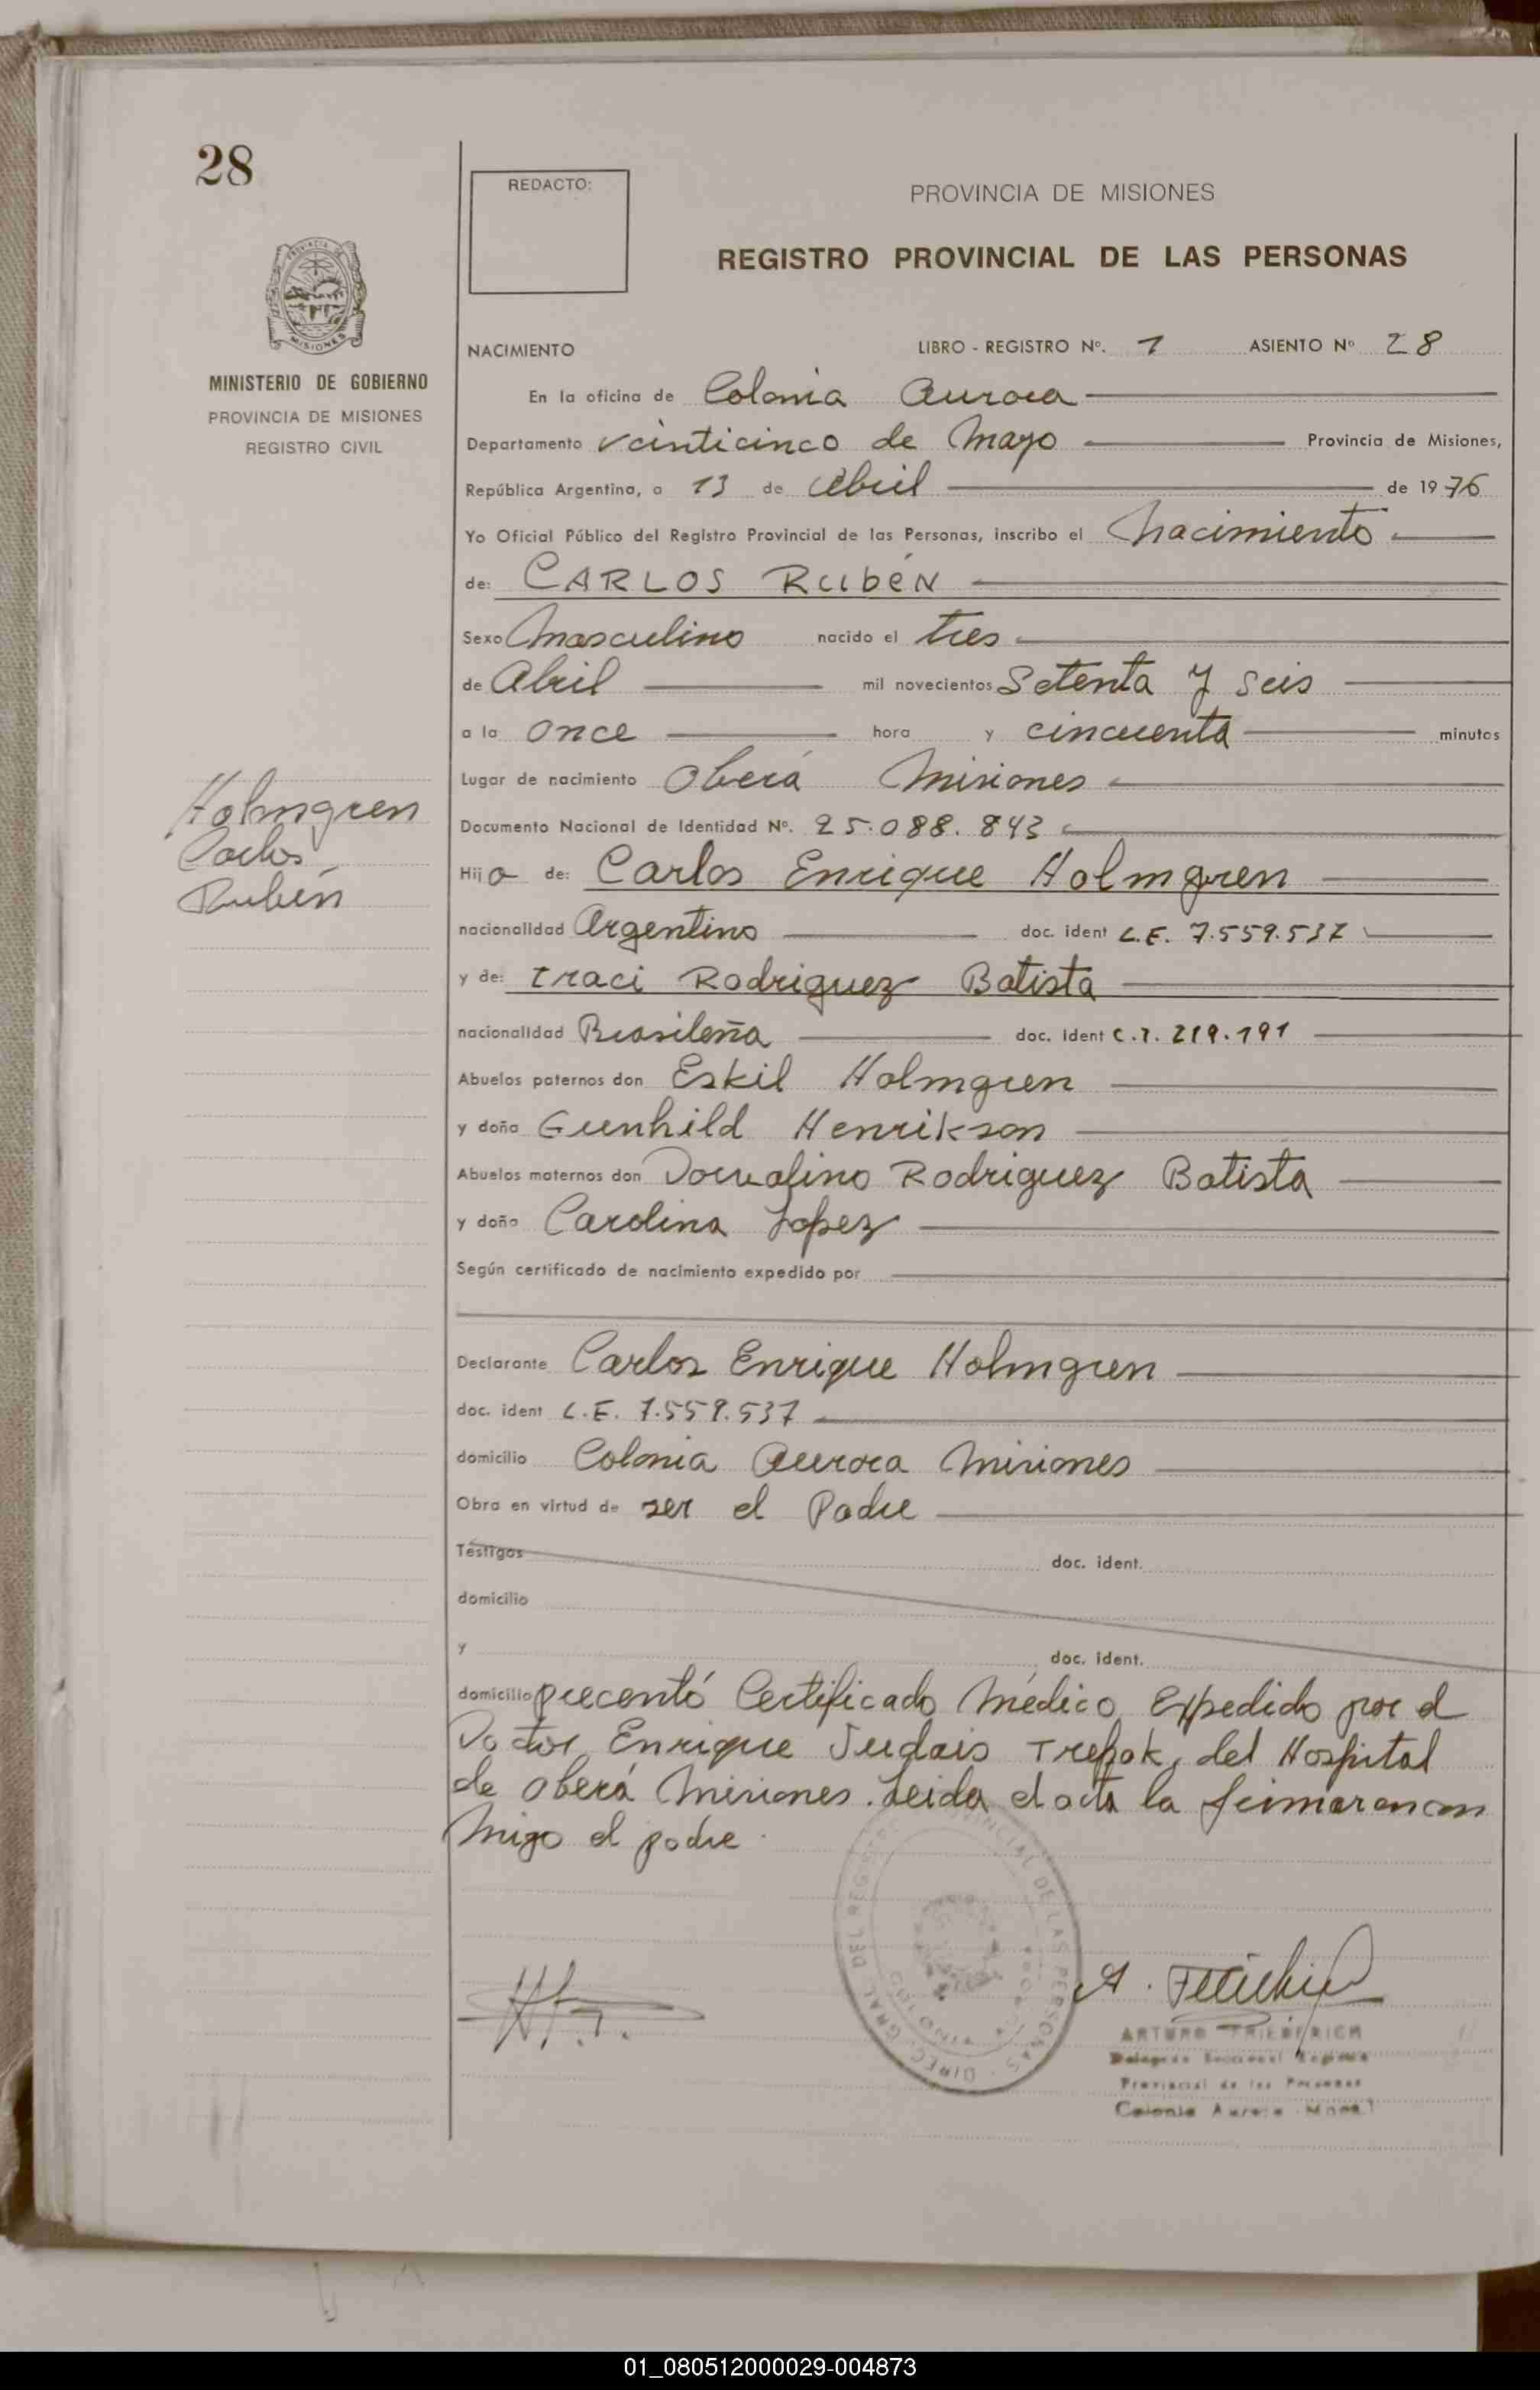 28
REDACTO:
PROVINCIA DE MISIONES
REGISTRO PROVINCIAL DE LAS PERSONAS
MISIONES
MINISTERIO DE GOBIERNO
PROVINCIA DE MISIONES
REGISTRO CIVIL
NACIMIENTO LIBRO - REGISTRO Nº. 1 ASIENTO Nº 28
En la oficina de Colonia Aurora
Departamento veinticinco de Mayo Provincia de Misiones,
República Argentina, a 13 de Abril de 1976
Yo Oficial Público del Registro Provincial de las Personas, inscribo el Nacimiento
de: CARLOS RubéN
Sexo Masculino nacido el tres
de Abril mil novecientos Setenta y seis
a la once hora y cincuenta minutos
Lugar de nacimiento Oberá Misiones
Holmgren
Carlos
Rubén
Documento Nacional de Identidad Nº. 25.088.843
Hijo de: Carlos Enrique Holmgren
nacionalidad Argentino doc. ident L.E. 7.559.537
y de: Iraci Rodriguez Batista
nacionalidad Brasileña doc. ident C.I. 219.191
Abuelos paternos don Eskil Holmgren
y doña Gunhild Henrikson
Abuelos maternos don Dorvalino Rodriguez Batista
y doña Carolina Lopez
Según certificado de nacimiento expedido por
Declarante Carlos Enrique Holmgren
doc. ident L.E. 7.559.537
domicilio Colonia Aurora Misiones
Obra en virtud de ser el Padre
Testigos doc. ident.
domicilio
y doc. ident.
domicilio precentó Certificado Médico Expedido por el
Doctor Enrique Judais Trepak, del Hospital
de Oberá Misiones. Leida el acta la firmaron con
migo el padre.
DIREC. GRAL DEL REGISTRO PROVINCIAL DE LAS PERSONAS
ARTURO FRIEDERICH
Delegado Seccional Registro
Provincial de las Personas
Colonia Aurora Mnes.
01_080512000029-004873